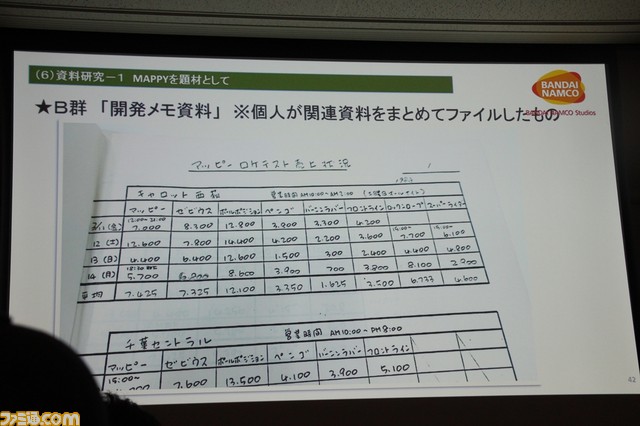 (6)資料研究－1 MAPPYを題材として
BANDAI
NAMCO
BANDAI NAMCO Studios
★B群 「開発メモ資料」 ※個人が関連資料をまとめてファイルしたもの
マッピー ロケテスト売上状況
キャロット西荻 営業時間 AM10:00~AM2:00
マッピー ゼビウス ポールポジション ペンゴ バーニンラバー フロントライン
(金) 7.000 8.300 12.800 3.800 3.300 4.200
12 (土) 12.600 7.800 14.400 4.200 2.200 3.600 7.700 6.100
13 (日) 4.400 6.400 12.600 1.500 300 2.400 4.400 4.800
14 (月) 5.700 8.600 3.900 700 3.800 8.100 2.900
平均 7.425 7.325 12.100 3.350 1.625 3.500 6.733 4.600
千葉セントラル 営業時間 AM10:00 ~ PM8:00
マッピー ゼビウス ポールポジション ペンゴ バーニンラバー フロントライン
15:00~
7.600 13.500 4.100 3.900 5.100
42
ファミ通.com